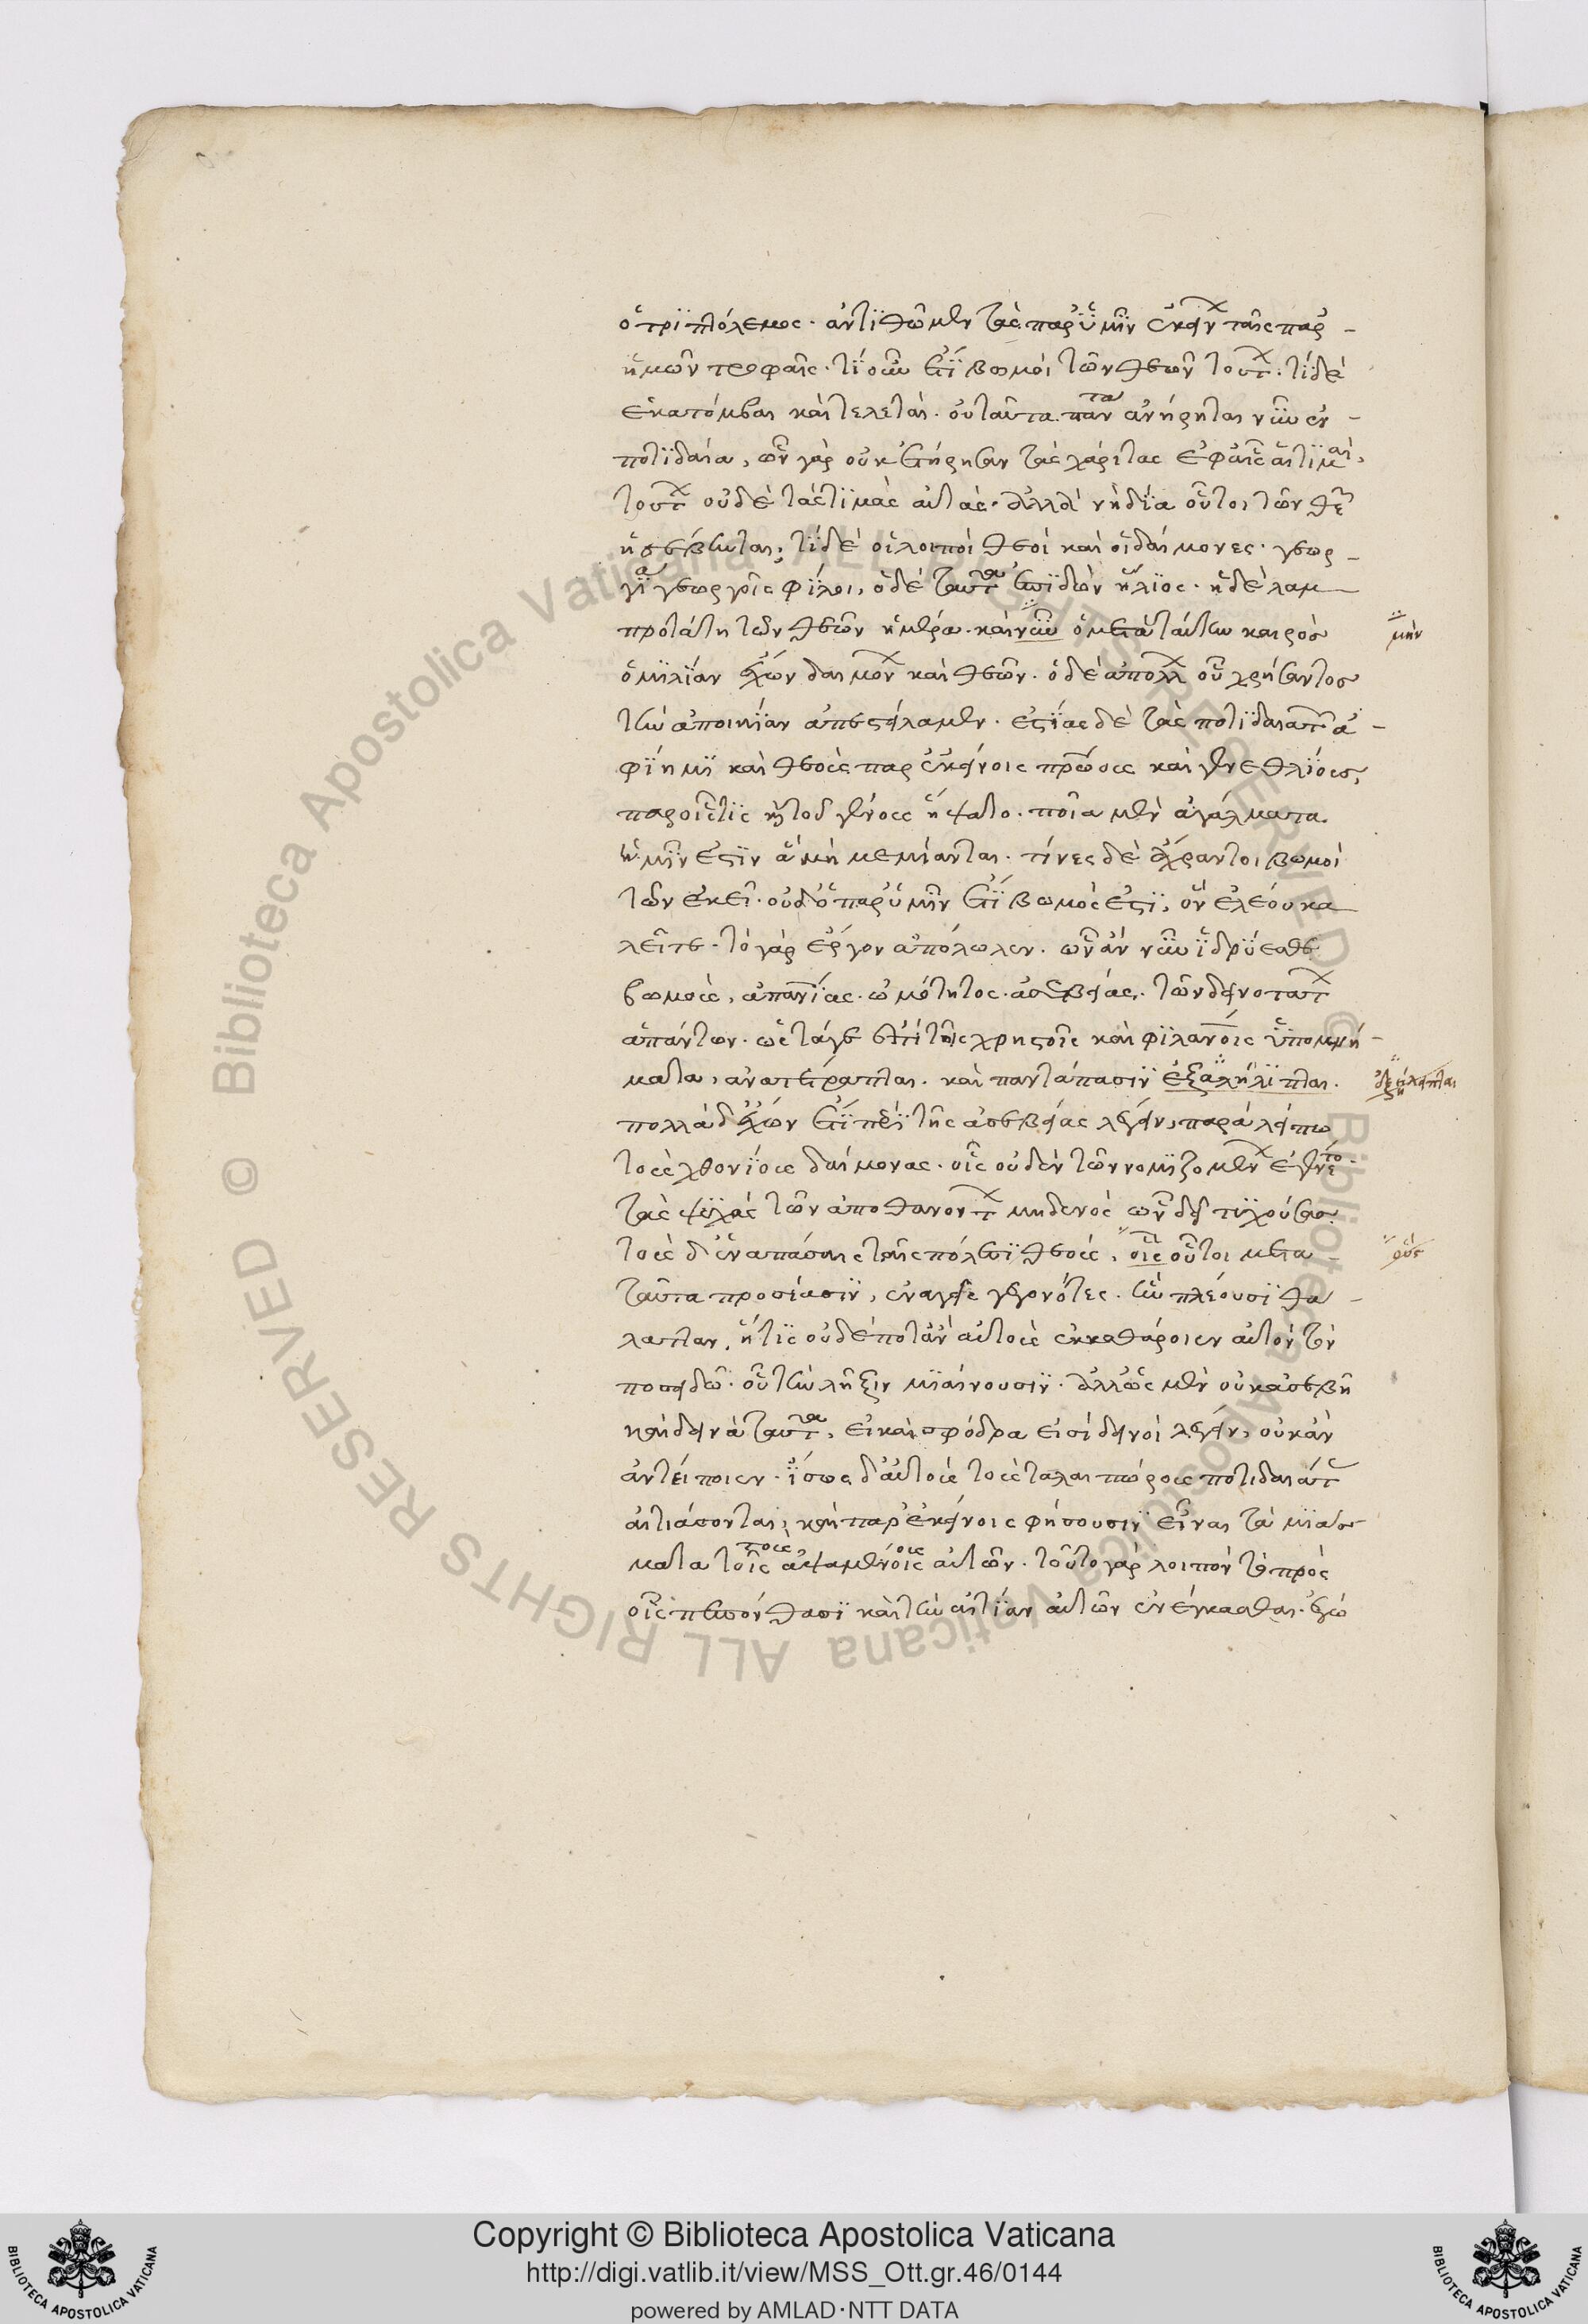 ὁ τριπτόλεμος. ἀντιθῶμεν τὰς παρ' ὑμῖν ἐκείνων ταῖς παρ-
ἡμῶν τροφαῖς. τί οὖν ἔτι βωμοὶ τῶν θεῶν τούτων. τί δὲ
ἑκατόμβαι καὶ τελεταί. οὐ ταῦτα πάντα ἀνήρηται νῦν ἐν
ποτιδαία, ὧν γὰρ οὐκ ἐτήρησαν τὰς χάριτας ἐφ' αἷς αἱ τιμαὶ,
τούτων οὐδὲ τὰς τιμὰς αὐτάς. ἀλλὰ νὴ δία οὗτοι τῶν θεῶν
ἠσέβηνται; τί δὲ οἱ λοιποὶ θεοὶ καὶ οἱ δαίμονες. γεωρ-
γία γεωργοῖς φίλοι, ὁ δὲ ταῦτα ἐπιδὼν ἥλιος. ἡ δὲ λαμ
προτάτη τῶν θεῶν ἡμέρα. καὶ νῦν ὁ μετὰ ταύτην καιρὸς
ὁμιλίαν ἔχων δαιμόνων καὶ θεῶν. ὁ δὲ ἀπόλλων οὗ χρήσαντος
τὴν ἀποικίαν ἀπεστείλαμεν. ἑστίας δὲ τὰς ποτιδαιατῶν ἀ-
φίημι καὶ θεοὺς παρ' ἐκείνοις πρώους καὶ γενεθλίους,
παρ' οἷς τις ἢ τοῦ γένους ἥψατο. ποῖα μὲν ἀγάλματα
ἡμῖν ἐστὶν ἃ μὴ μεμίανται. τίνες δὲ ἄχραντοι βωμοὶ
τῶν ἐκεῖ. οὐδ' ὁ παρ' ὑμῖν ἔτι βωμός ἐστι, ὃν ἐλέου κα
λεῖτε. τὸ γὰρ ἔργον ἀπόλωλεν. ὧν ἂν νῦν ἱδρύεσθε
βωμοὺς, ἀπανθρωπίας. ὠμότητος. ἀσεβείας. τῶν δεινοτάτων
ἁπάντων. ὡς τάγε ἐπὶ τοῖς χρηστοῖς καὶ φιλανθρώποις ὑπομνή-
ματα, ἀνατέτραπται. καὶ παντάπασιν ἐξαλήλιπται.
πολλὰ δ' ἔχων ἔτι περὶ τῆς ἀσεβείας λέγειν, παραλείπω
τοὺς χθονίους δαίμονας. οἷς οὐδὲν τῶν νομιζομένων ἐγένετο.
τὰς ψυχὰς τῶν ἀποθανόντων μηδενὸς ὧν δεῖ τυχούσας.
τοὺς δ' ἐν ἁπάσαις ταῖς πόλεσι θεούς, οἷς οὗτοι μετὰ
ταῦτα προσίασιν, ἐναγεῖς γεγονότες. ἣν πλέουσι θά-
λατταν, ἥτις οὐδέποτ' ἂν αὐτοὺς ἐκκαθάροιεν αὐτὸν τὸν
ποσειδῶ. οὗ τὴν λῆξιν μιαίνουσιν. ἀλλ' ὡς μὲν οὐκ ἀσεβῆ
καὶ δεινὰ ταῦτα, εἰ καὶ σφόδρα εἰσὶ δεινοὶ λέγειν, οὐκ ἂν
ἀντείποιεν. ἴσως δ' αὐτοὺς τοὺς ταλαιπώρους ποτιδαιάτας
αἰτιάσονται, καὶ παρ' ἐκείνοις φήσουσιν εἶναι τὰ μιάσ
ματα τοῖς τοὺς ἁψαμένοις ους αὐτῶν. τοῦτο γὰρ λοιπὸν τὸ πρὸς
οἷς πεπόνθασι καὶ τὴν αἰτίαν αὐτῶν ἐνέγκασθαι. ἐγὼ
μὴν
οὓς